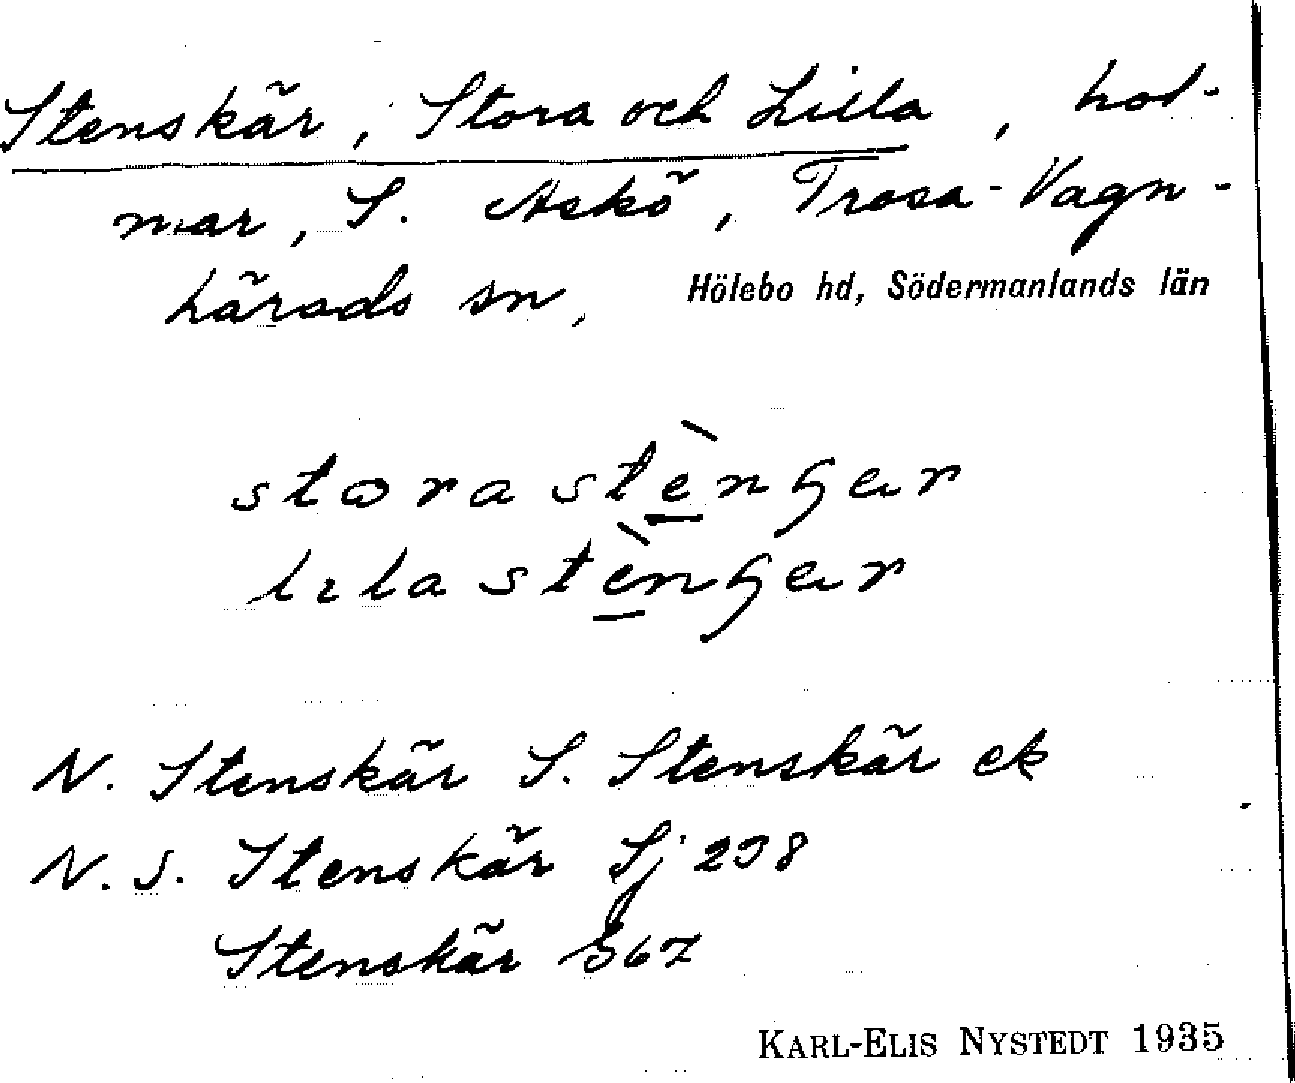 Stenskär, Stora och Lilla, hol-
mar, S. Askö, Trosa-Vagn-
härads sn, Hölebo hd, Södermanlands län
N. Stenskär S. Stenskär ek
N. S. Stenskär Sj 238
Stenskär S67
KARL-ELIS NYSTEDT 1935